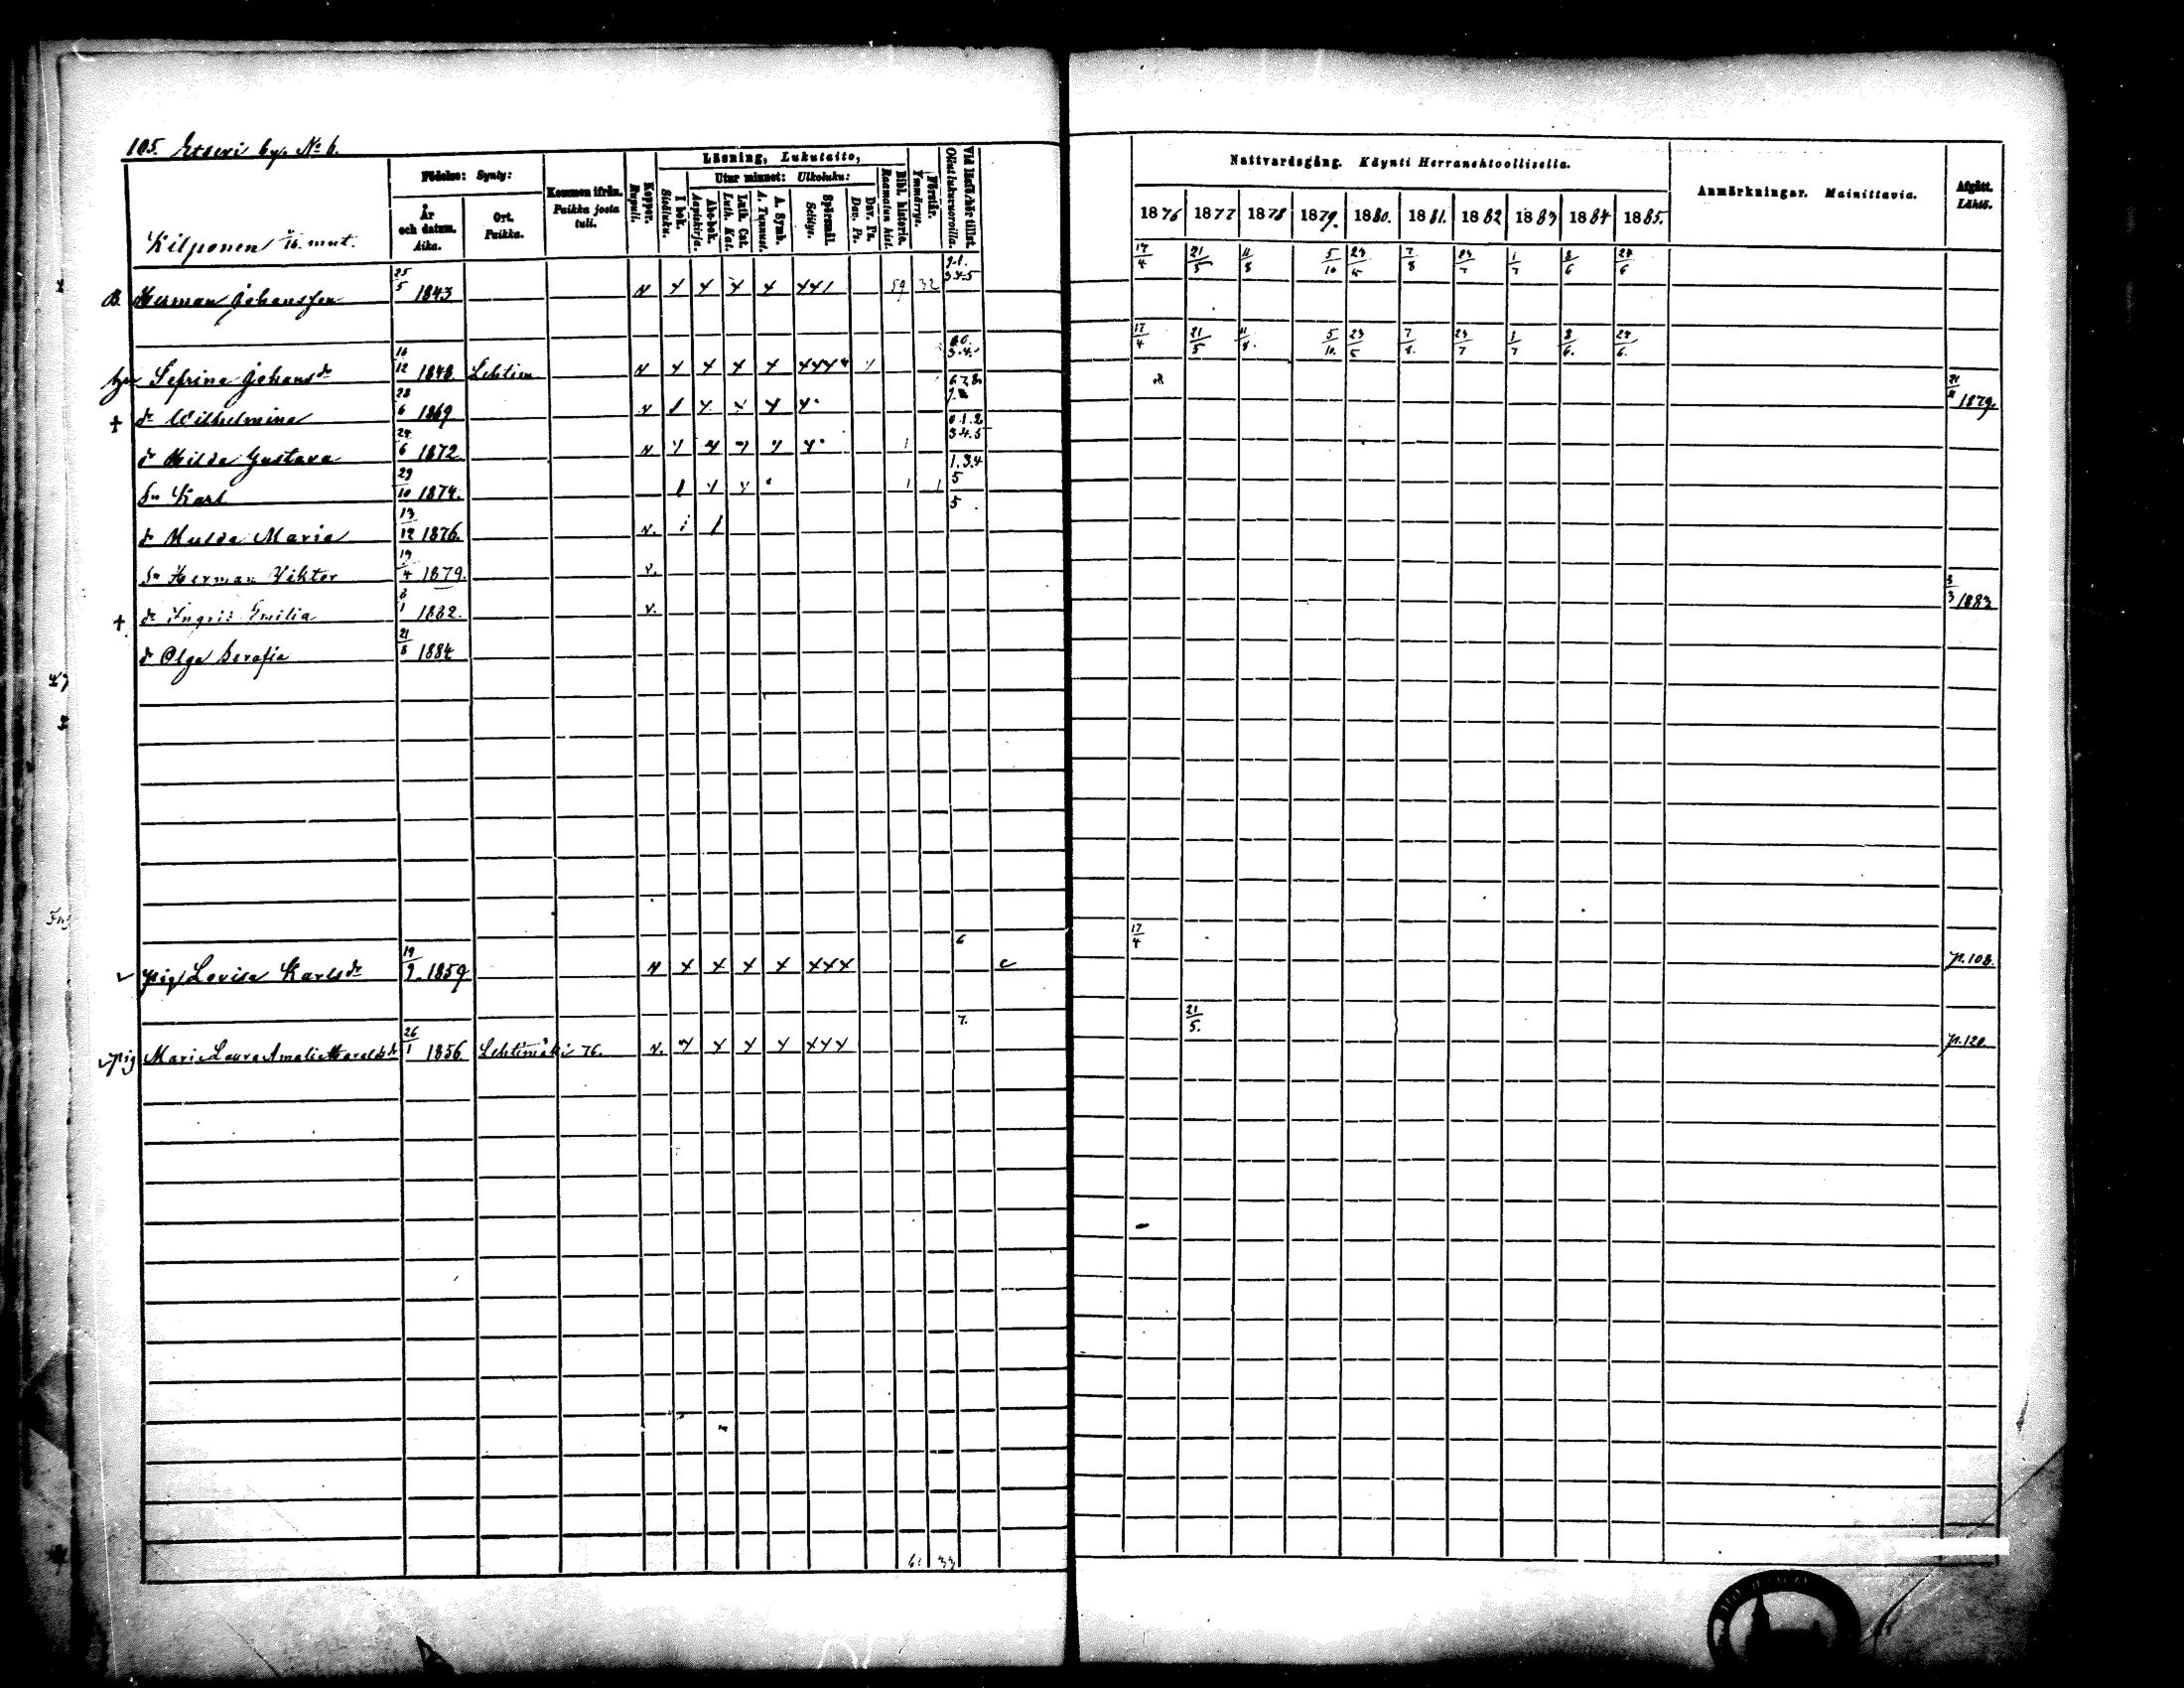 105. Etseri by. No 6.
Kilponen 1/16 mnt.
Födelse: Synty:
År och datum. Aika.
Ort. Paikka.
Kommen ifrån. Paikka josta tuli.
Koppor. Rupuli.
Läsning, Lukutaito,
I bok. Sisäluku.
Utur minnet: Ulkoluku:
Abc-bok. Aapiskirja.
Luth. Cat. Luth. Kat.
A. Symb. A. Tunnust.
Spörsmål. Selitys.
Dav. Ps. Dav. Ps.
Bibl. historia. Raamatun hist.
Förstår. Ymmärrys.
Vid läsförhör tillst. Ollut lukuvuoroilla.
Nattvardsgång. Käynti Herranehtoollisella.
1876 1877 1878 1879. 1880. 1881. 1882 1883 1884 1885.
Anmärkningar. Mainittavia.
Afgått. Lähtö.
B. Herman Johansson 25/5 1843 N x x x x xx1 59 32 3.4.5 17/4 21/5 11/8 5/10 23/5 7/8 23/7 1/7 8/6 24/6
Sefrina Johansdr 16/12 1848. Lehtim N x x x x xxxx 3.4. 17/4 21/5 11/8. 5/10. 23/5 7/8. 23/7 1/7 8/6. 24/6.
+ dr Wilhelmina 28/6 1869 1879.
dr Hilda Gustava 24/6 1872 0.1.2 3.4.5
sn Karl 29/10 1874. 1.3.4 5
dr Hulda Maria 13/12 1876. 5
sn Herman Viktor 19/4 1879.
+ dr Ingrid Emilia 8/1 1882. v. 3/3 1883
dr Olga Serafia 21/8 1884
pig Lovisa Karlsdr 19/9 1859 N x x x x xxx 6 17/4 p.108.
pig Maria Laura Amalia 26/1 1856 Lehtimäki 76. x x x x xxx 7. 21/5. p.120
61 33